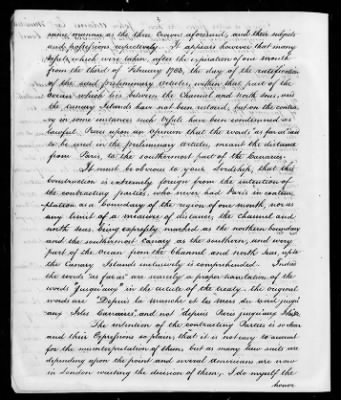 same manner as the three Crowns aforesaid, and their subjects
and possessions respectively. It appears however that many
vessels which were taken, after the expiration of one month
from the third of February 1783, the day of the ratification
of the said preliminary articles, within that part of the
Ocean which lies between the Channel and North Seas, and
the Canary Islands have not been restored, but on the contra-
ry in some instances such Vessels have been condemned as
lawful Prizes upon an opinion that the words "as far as" as
to be used in the preliminary articles, meant the distance
from Paris, to the southermost part of the Canaries.
It must be obvious to your Lordship, that this
construction is extremely foreign from the intention of
the contracting parties, who never had Paris in contem-
plation as a boundary of the region of one month, nor as
any limit of a measure of distance, the channel and
north seas, being expressly marked as the northern boundary
and the southermost Canary as the southern, and every
part of the Ocean from the Channel and north seas, upto
the Canary Islands inclusively is comprehended. Indeed
the words "as far as" are merely a proper translation of the
words "jusqu'aux" in the article of the treaty. the original
words are "Depuis la Manche et les mers du nord jusqu'
aux Isles Canaries" and not depuis Paris jusqu'aux Isles
The intention of the contracting Parties is so clear
and their Expressions so plain, that it is not easy to account
for the misinterpretation of them, but as many law suits are
depending upon the point and several Americans are now
in London waiting the decision of them, I do myself the
honor